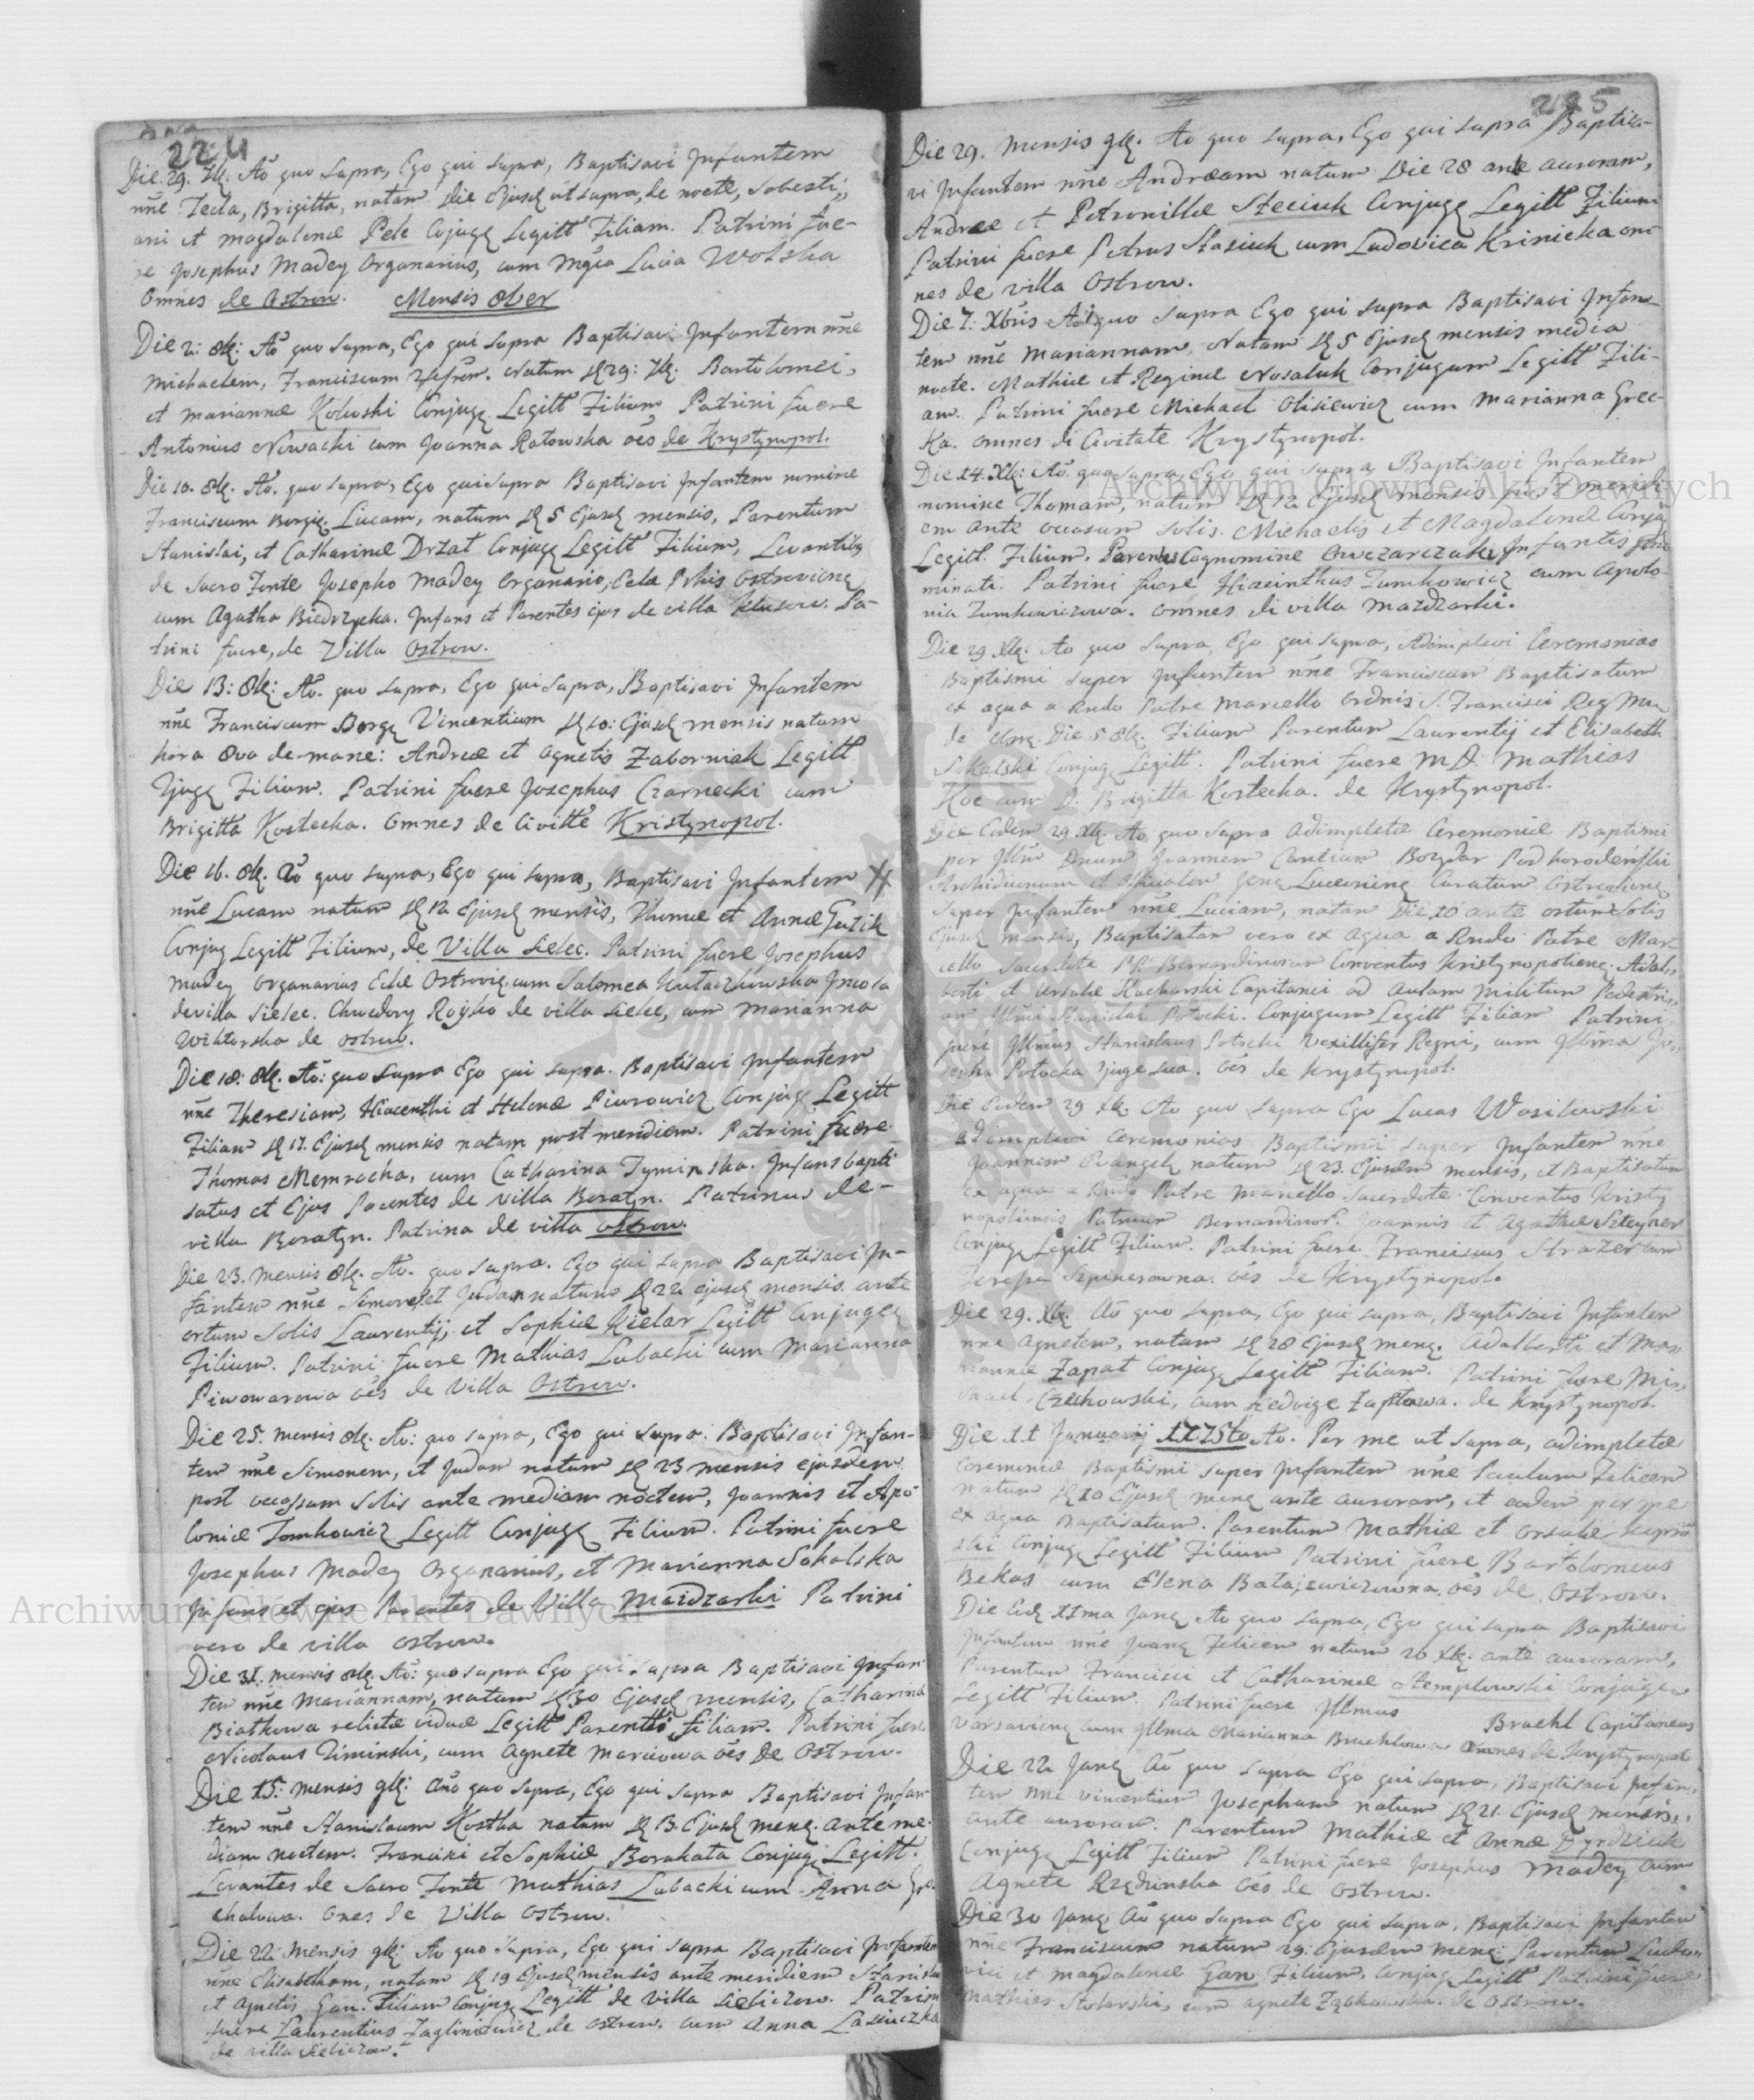 224
Die 29. 7br. Ao quo supra, Ego qui supra, Baptisavi Infantem
nne Tecla, Brigitta, natam Die Ejusd ut supra, de nocte, Sebasti„
ani et Magdalenæ Pele Cojugq Legitt Filiam. Patrini fue-
re Josephus Madey Organarius, cum Lucia Wolska
Omnes de Ostrow. Mensis 8ber
Die 2: 8br: Ao quo supra, Ego qui supra Baptisavi Infantem nne
Michaelem, Franciscum natum 29: 7br. Bartolomei,
et Mariannæ Conjugq Legitt Filium, Patrini fuere
Antonius Nowacki cum Joanna Ratowska oes de Krystynopol.
Die 10. 8br. Ao. quo supra, Ego qui supra Baptisavi Infantem nomine
Franciscum Borgiq. Lucam, natum 5 Ejusd mensis, Parentum
Stanislai, et Catharinæ Drzał Conjugq Legitt Filium, Levantibq
de Sacro Fonte Josepho Madey Organario, Ostroviens
cum Agatha Biedrzycka. Infans et Parentes ejus de villa Pa-
trini fuere, de Villa Ostrow.
Die 13: 8br: Ao. quo supra, Ego qui supra, Baptisavi Infantem
nne Franciscum Borgq Vincentium 10: Ejusd mensis natum
hora 8va de mane: Andreæ et Agnetis Zaborniak Legitt
Filium. Patrini fuere Josephus Czarnecki cum
Brigitta Kostecka. Omnes de Civitte Kristynopol.
Die 16. 8br. Ao quo supra, Ego qui supra, Baptisavi Infantem
nne Lucam natum 12 Ejusd mensis, Thomæ et Annæ Guzik
Conjug Legitt Filium, de Villa Sielec. Patrini fuere Josephus
Madey Organarius Ostrovie cum Salomea
de villa Sielec. Chwedory de villa Sielec, cum Marianna
Wiktorska de Ostrow.
Die 18: 8br. Ao: quo supra Ego qui supra. Baptisavi Infantem
nne Theresiam, Hiacenthi et Helenæ Piurowicz Conjugq Legitt
Filiam 17. Ejusd mensis natam post meridiem. Patrini fuere
Thomas cum Catharina Tyminska. Infans bapti
satus et Ejus Parentes de villa Boratyn. Patrinus de-
villa Boratyn. Patrina de villa Ostrow.
Die 23. mensis 8br. Ao. quo supra. Ego qui supra Baptisavi In-
fantem nne Simonem et Judam natum 22 ejusd mensis ante
ortum Solis Laurentij, et Sophiæ Kielar Legitt Conjugq
Filium. Patrini fuere Mathias Lubacki cum Marianna
Piwowarowa oes de Villa Ostrow.
Die 25. mensis 8br. Ao: quo supra, Ego qui supra. Baptisavi Infan-
tem nne Simonem, et Judam natum 23 mensis ejusdem
post occasum Solis ante mediam noctem, Joannis et Apo
loniæ Tomkowicz Legitt Conjugq Filium. Patrini fuere
Josephus Madey Organarius, et Marianna Sokalska
Infans et ejus Parentes de Villa Mazdzarki Patrini
vero de villa Ostrow.
Die 31. mensis 8br. Ao: quo supra Ego qui supra Baptisavi Infan
tem nne Mariannam, natam 30 Ejusd mensis, Catharinæ
Białkowa relictæ viduæ Legitt Filiam. Patrini fuere
Nicolaus Ziminski, cum Agnete oes de Ostrow.
Die 15. mensis 9br: Ano quo supra, Ego qui supra Baptisavi Infan-
tem nne Stanislaum Kostka natum 13. Ejusd mens. ante me-
diam noctem. Francisci et Sophiæ Borakata Conjugq Legitt.
Levantes de Sacro Fonte Mathias Lubacki cum Anna
chalowa. Ones de Villa Ostrow.
Die 22. mensis 9br: Ao quo supra, Ego qui supra Baptisavi Infantem
nne Elisabetham, natam 19 Ejusd mensis ante meridiem
et Agnetis Gan. Filiam Conjug Legitt de villa Patrini
fuere Laurentius de Ostrow. cum Anna
de villa
Die 29. mensis 9br. Ao quo supra, Ego qui supra Baptisa-
vi Infantem nne Andream natum Die 28 ante auroram,
Andreæ et Petronillæ Steciuk Conjugq Legitt Filium
Patrini fuere Petrus Stasiuk cum Ludovica Krinicka om-
nes de villa Ostrow.
Die 7: Xbris Ao quo supra Ego qui supra Baptisavi Infan-
tem nne Mariannam, Natam 5 Ejusd mensis media
nocte. Mathiæ et Reginæ Nosaluk Conjugum Legitt Fili-
am. Patrini fuere Michael Olisiewicz cum Marianna Grec-
ka. Omnes di Civitate Krystynopol.
Die 14. Xbr: Ao. quo supra, Ego qui supra Baptisavi Infantem
nomine Thomam, natum 12 Ejusd mensis post meridi
em ante occasum solis. Michaelis et Magdalenæ Conjug
Legitt. Filium. Parentes Cognomine Owczarczaki, Infantis
minati. Patrini fuere Hiacinthus Tumkowicz cum Apolo-
nia Tumkowiczowa. Omnes di villa Mazdzarki.
Die 29 Xbr. Ao quo supra, Ego qui supra, Adimplevi Ceremonias
Baptismi super Infantem nne Franciscum Baptisatum
ex aqua a Rndo Patre Marcello Ordinis S. Francisci
Die 5 8br. Filium Parentum Laurentij et Elisabeth
Sokalski Conjug Legitt. Patrini fuere M.D. Mathias
cum D. Brigitta Kostecka. de Krystynopol.
Die Eadem 29 Xbr. Ao quo supra Adimpletæ Ceremoniæ Baptismi
per Joannem Cantium Bozydar Podhorodeński
Archidiaconum et Officialem Curatum
super Infantem nne Luciam, natam Die 10 ante ortum Solis
Ejusd mensis, Baptisatam vero ex aqua a Rndo Patre Mar-
cello Sacerdote PP. Bernardinorum Conventus Kristynopoliens. Adal„
berti et Ursulæ Kucharski Capitanei ad Aulam Militum Pedestri„
Stanislai Potocki. Conjugum Legitt Filiam Patrini
fuere Illmus Stanislaus Potocki Vexillifer Regni, cum Illma Jo„
sepha Potocka jugæ sua. oes de Krystynopol.
Die Eadem 29 Xbr. Ao quo supra Ego Lucas Wasilewski
adimplevi Ceremonias Baptismi super Infantem nne
Joannem Evangelq natum 23. Ejusdem mensis, et Baptisatum
ex aqua a Rndo Patre Marcello Sacerdote Conventus Kristy
nopoliensis Patrum Bernardinor. Joannis et Agathæ Szteyner
Conjugq Legitt Filium. Patrini fuere Franciscus Strazer cum
Teresia Szpinerowna. oes de Krystynopol.
Die 29. Xbr. Ao quo supra, Ego qui supra, Baptisavi Infantem
nne Agnetem, natam 28 Ejusd mens. Adalberti et Ma„
riannæ Zapał Conjugq Legitt Filiam. Patrini fuere Mi„
chael Czechowski, cum Hedvige Zapłowa. de Krystynopol.
Die 11 Januarij 1775to Ao. Per me ut supra, adimpletæ
Ceremoniæ Baptismi super Infantem nne Paulum Felicem
natum 10 Ejusd mens ante auroram, et eadem per me
ex aqua Baptisatum. Parentum Mathiæ et Ursulæ
Conjugq Legitt Filium Patrini fuere Bartolomeus
Bekas cum Elena Batajewiczowna oes de Ostrow.
Die Ead 11ma Janq Ao quo supra, Ego qui supra Baptisavi
Infantem nne Felicem natum 20 Xbr: ante auroram,
Parentum Francisci et Catharinæ Stemplowski Conjuges
Legitt Filium. Patrini fuere Illmus Bruehl Capitaneus
Varsaviens cum Illma Marianna Bruehlowa Omnes de Krystynopol
Die 22 Janq Ao quo supra Ego qui supra, Baptisavi Infan„
tem nne Vincentium Josephum natum 21. Ejusd mensis,
ante auroram. Parentum Mathiæ et Annæ Dyrdziuk
Conjugq Legitt Filium Patrini fuere Josephus Madey cum
Agnete Rzedzinska oes de Ostrow.
Die 30 Janq Ao quo supra Ego qui supra, Baptisavi Infantem
nne Franciscum natum 29. Ejusdem mens: Parentum Ludo„
vici et Magdalenæ Gan Filium, Conjug Legitt Patrini fuere
Mathias Stolarski, cum Agnete de Ostrow.
Archiwum Główne Akt Dawnych
Archiwum Główne Akt Dawnych